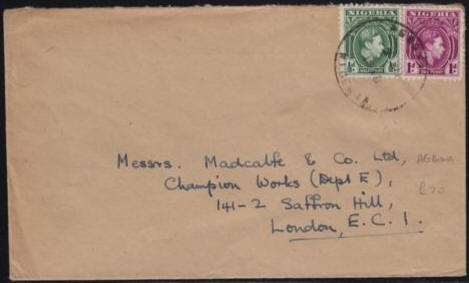 NIGERIA NIGERIA
½d 1d
Messrs. Madcalfe & Co. Ltd,
Champion Works (Dept E),
141-2 Saffron Hill,
London, E.C.1.
£20